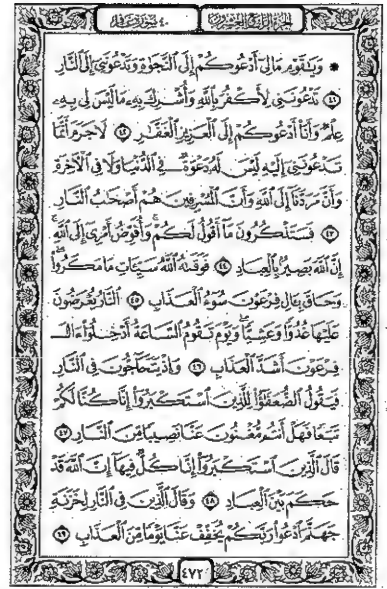 الجزء الرابع والعشرون ٤٠ سورة غافر
۞ وَيَٰقَوْمِ مَالِىٓ أَدْعُوكُمْ إِلَى ٱلنَّجَوٰةِ وَتَدْعُونَنِىٓ إِلَى ٱلنَّارِ
٤١ تَدْعُونَنِى لِأَكْفُرَ بِٱللَّهِ وَأُشْرِكَ بِهِۦ مَا لَيْسَ لِى بِهِۦ
عِلْمٌ وَأَنَا۠ أَدْعُوكُمْ إِلَى ٱلْعَزِيزِ ٱلْغَفَّٰرِ ٤٢ لَا جَرَمَ أَنَّمَا
تَدْعُونَنِىٓ إِلَيْهِ لَيْسَ لَهُۥ دَعْوَةٌ فِى ٱلدُّنْيَا وَلَا فِى ٱلْءَاخِرَةِ
وَأَنَّ مَرَدَّنَآ إِلَى ٱللَّهِ وَأَنَّ ٱلْمُسْرِفِينَ هُمْ أَصْحَٰبُ ٱلنَّارِ
٤٣ فَسَتَذْكُرُونَ مَآ أَقُولُ لَكُمْ وَأُفَوِّضُ أَمْرِىٓ إِلَى ٱللَّهِ
إِنَّ ٱللَّهَ بَصِيرٌۢ بِٱلْعِبَادِ ٤٤ فَوَقَىٰهُ ٱللَّهُ سَيِّـَٔاتِ مَا مَكَرُوا۟
وَحَاقَ بِـَٔالِ فِرْعَوْنَ سُوٓءُ ٱلْعَذَابِ ٤٥ ٱلنَّارُ يُعْرَضُونَ
عَلَيْهَا غُدُوًّا وَعَشِيًّا وَيَوْمَ تَقُومُ ٱلسَّاعَةُ أَدْخِلُوٓا۟ ءَالَ
فِرْعَوْنَ أَشَدَّ ٱلْعَذَابِ ٤٦ وَإِذْ يَتَحَآجُّونَ فِى ٱلنَّارِ
فَيَقُولُ ٱلضُّعَفَٰٓؤُا۟ لِلَّذِينَ ٱسْتَكْبَرُوٓا۟ إِنَّا كُنَّا لَكُمْ
تَبَعًا فَهَلْ أَنتُم مُّغْنُونَ عَنَّا نَصِيبًا مِّنَ ٱلنَّارِ ٤٧
قَالَ ٱلَّذِينَ ٱسْتَكْبَرُوٓا۟ إِنَّا كُلٌّ فِيهَآ إِنَّ ٱللَّهَ قَدْ
حَكَمَ بَيْنَ ٱلْعِبَادِ ٤٨ وَقَالَ ٱلَّذِينَ فِى ٱلنَّارِ لِخَزَنَةِ
جَهَنَّمَ ٱدْعُوا۟ رَبَّكُمْ يُخَفِّفْ عَنَّا يَوْمًا مِّنَ ٱلْعَذَابِ ٤٩
٤٧٢